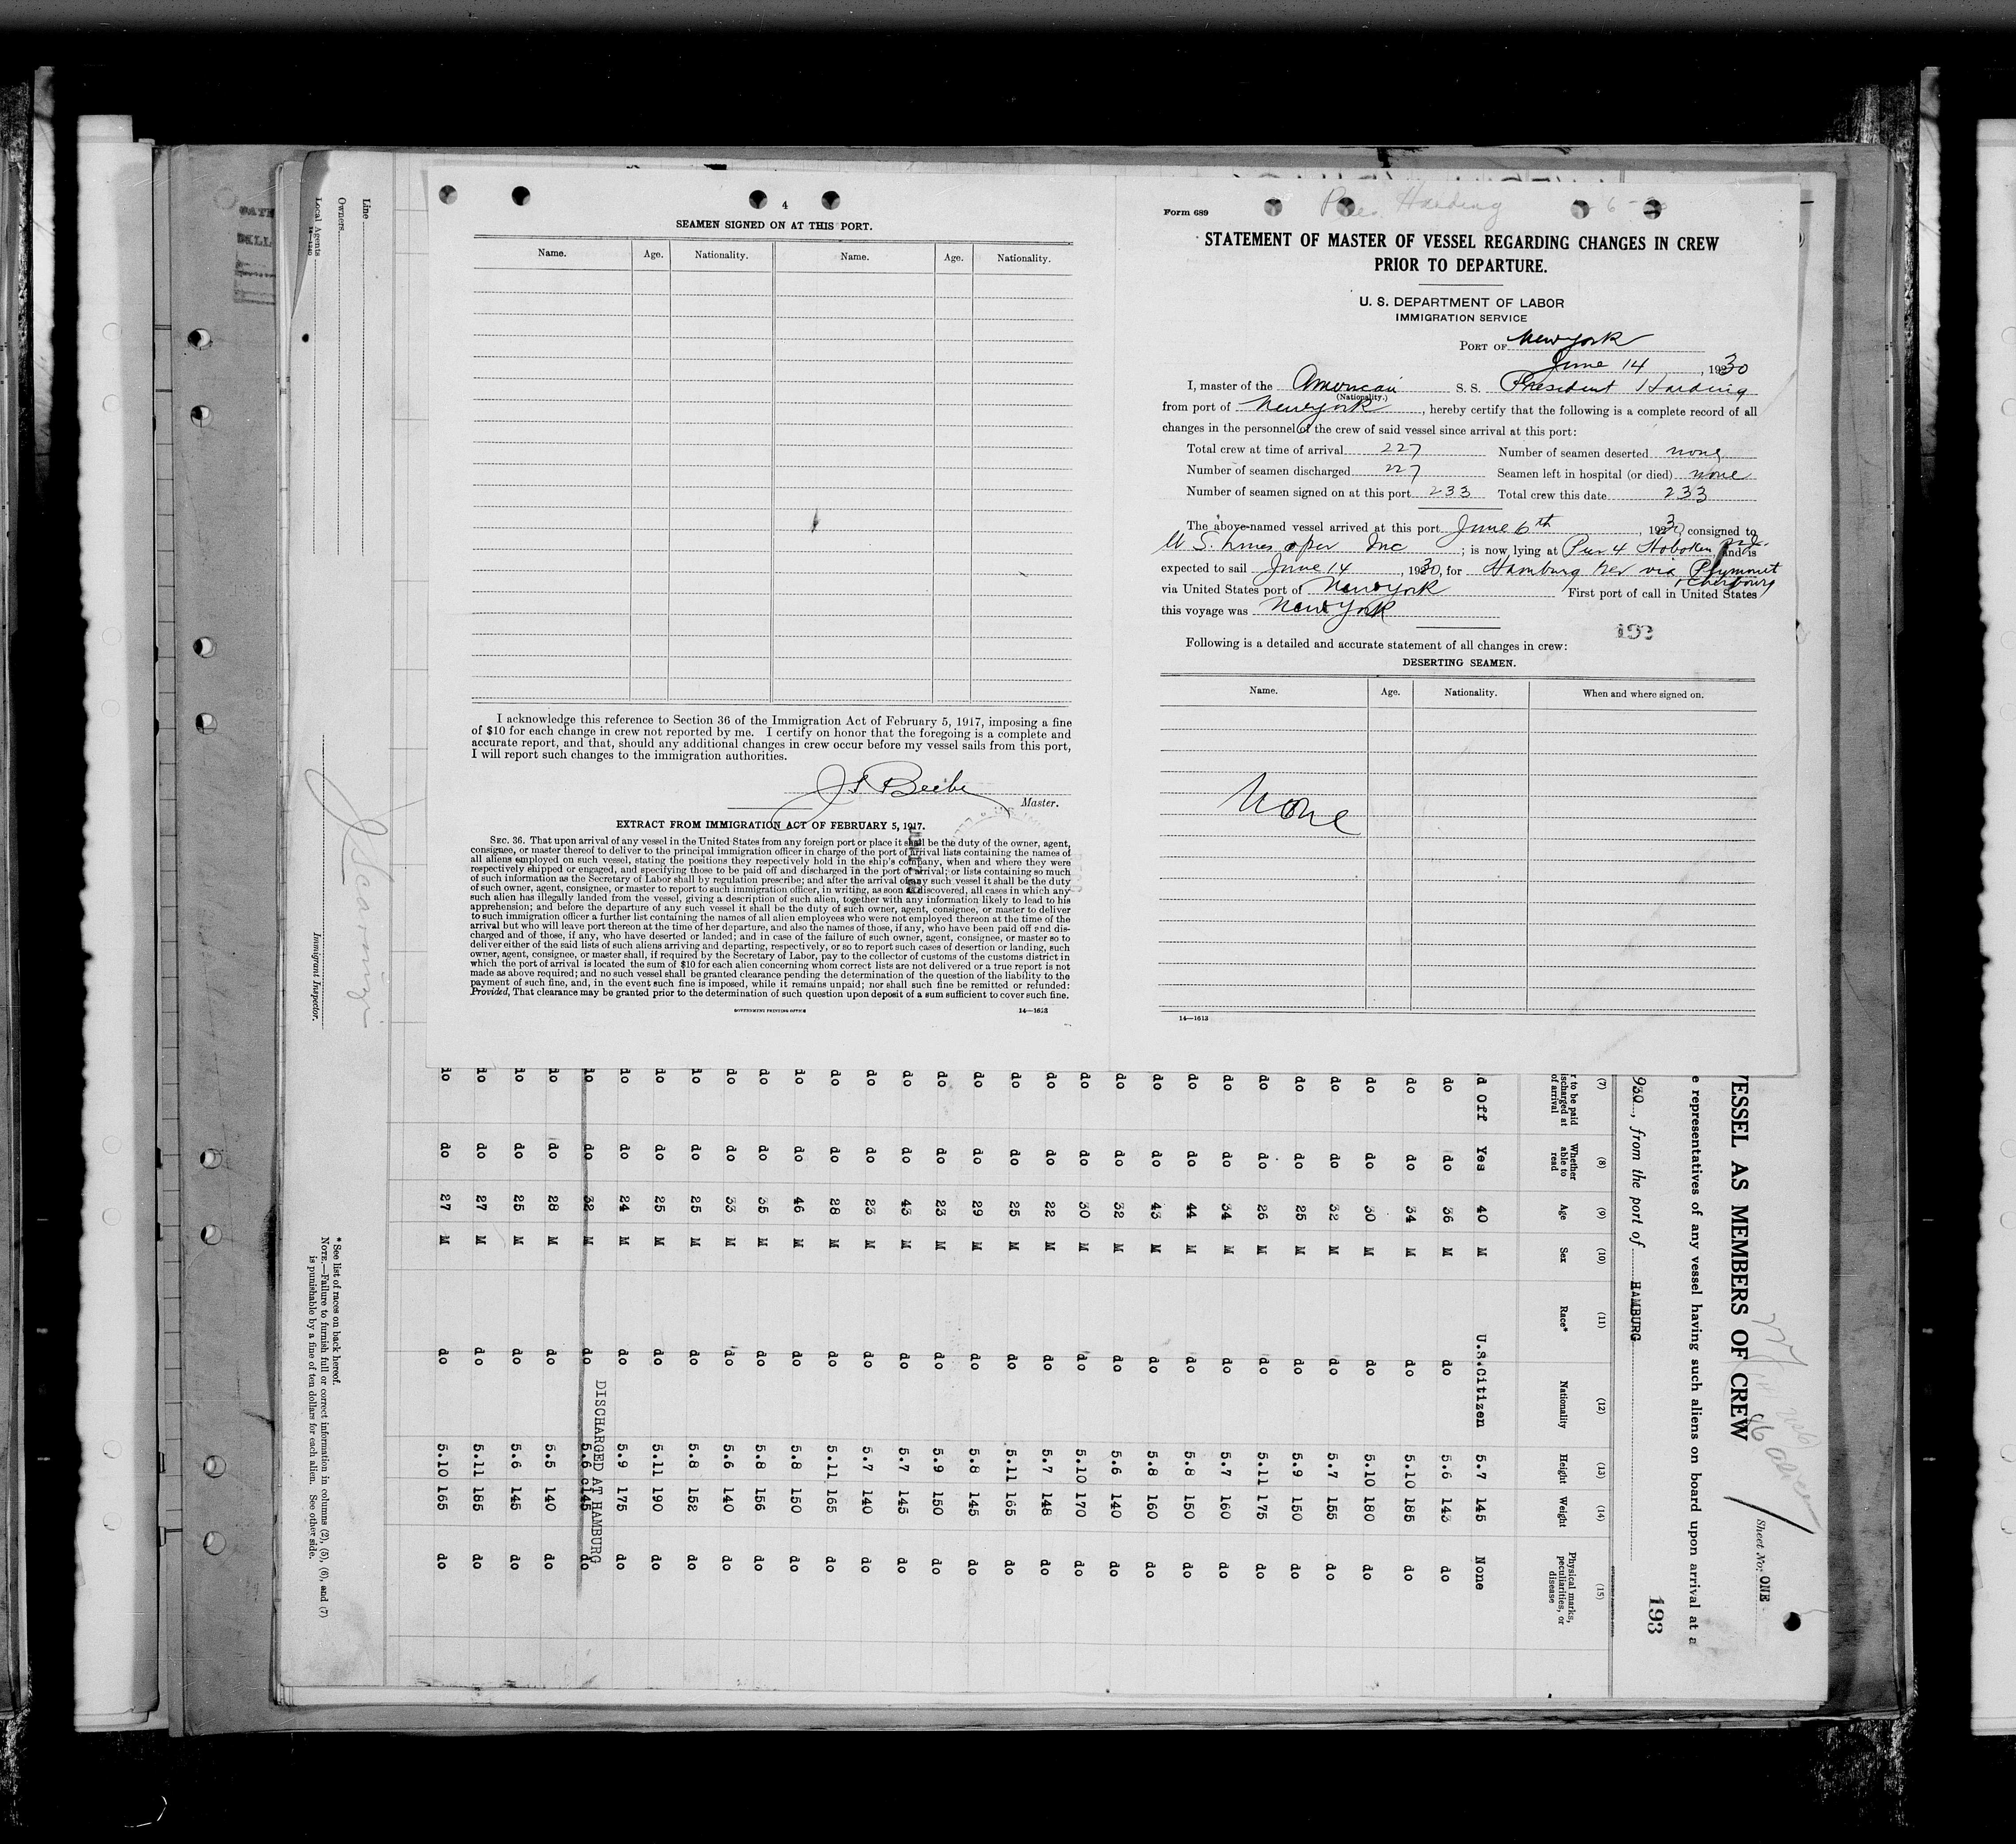 4
SEAMEN SIGNED ON AT THIS PORT.
Name. Age. Nationality. Name. Age. Nationality.
I acknowledge this reference to Section 36 of the Immigration Act of February 5, 1917, imposing a fine
of $10 for each change in crew not reported by me. I certify on honor that the foregoing is a complete and
accurate report, and that, should any additional changes in crew occur before my vessel sails from this port,
I will report such changes to the immigration authorities.
Beebe
Master.
EXTRACT FROM IMMIGRATION ACT OF FEBRUARY 5, 1917.
SEC. 36. That upon arrival of any vessel in the United States from any foreign port or place it shall be the duty of the owner, agent,
consignee, or master thereof to deliver to the principal immigration officer in charge of the port of arrival lists containing the names of
all aliens employed on such vessel, stating the positions they respectively hold in the ship's company, when and where they were
respectively shipped or engaged, and specifying those to be paid off and discharged in the port of arrival; or lists containing so much
of such information as the Secretary of Labor shall by regulation prescribe; and after the arrival of any such vessel it shall be the duty
of such owner, agent, consignee, or master to report to such immigration officer, in writing, as soon as discovered, all cases in which any
such alien has illegally landed from the vessel, giving a description of such alien, together with any information likely to lead to his
apprehension; and before the departure of any such vessel it shall be the duty of such owner, agent, consignee, or master to deliver
to such immigration officer a further list containing the names of all alien employees who were not employed thereon at the time of the
arrival but who will leave port thereon at the time of her departure, and also the names of those, if any, who have been paid off and dis-
charged and of those, if any, who have deserted or landed; and in case of the failure of such owner, agent, consignee, or master so to
deliver either of the said lists of such aliens arriving and departing, respectively, or so to report such cases of desertion or landing, such
owner, agent, consignee, or master shall, if required by the Secretary of Labor, pay to the collector of customs of the customs district in
which the port of arrival is located the sum of $10 for each alien concerning whom correct lists are not delivered or a true report is not
made as above required; and no such vessel shall be granted clearance pending the determination of the question of the liability to the
payment of such fine, and, in the event such fine is imposed, while it remains unpaid; nor shall such fine be remitted or refunded:
Provided, That clearance may be granted prior to the determination of such question upon deposit of a sum sufficient to cover such fine.
GOVERNMENT PRINTING OFFICE 14—1613
Pres. Harding
Form 689
STATEMENT OF MASTER OF VESSEL REGARDING CHANGES IN CREW
PRIOR TO DEPARTURE.
U. S. DEPARTMENT OF LABOR
IMMIGRATION SERVICE
PORT OF New York
June 14, 1930
I, master of the American S. S. President Harding
(Nationality.)
from port of New York, hereby certify that the following is a complete record of all
changes in the personnel of the crew of said vessel since arrival at this port:
Total crew at time of arrival 227 Number of seamen deserted none
Number of seamen discharged 227 Seamen left in hospital (or died) none
Number of seamen signed on at this port 233 Total crew this date 233
The above-named vessel arrived at this port June 6th, 1930, consigned to
U S. Lines oper Inc; is now lying at Pier 4 Hoboken, and is
expected to sail June 14, 1930, for Hamburg Ger via Plymouth
& Cherbourg
via United States port of New York First port of call in United States
this voyage was New York
192
Following is a detailed and accurate statement of all changes in crew:
DESERTING SEAMEN.
Name. Age. Nationality. When and where signed on.
None
14—1613
VESSEL AS MEMBERS OF CREW
Sheet No. ONE
e representatives of any vessel having such aliens on board upon arrival at a
930, from the port of HAMBURG
193
(7) (8) (9) (10) (11) (12) (13) (14) (15)
r to be paid ischarged at of arrival Whether able to read Age Sex Race* Nationality Height Weight Physical marks, peculiarities, or disease
d Off Yes 40 M U.S.Citizen 5.7 145 None
do do 36 M do 5.6 143 do
do do 34 M do 5.10 185 do
do do 30 M do 5.10 180 do
do do 32 M do 5.7 155 do
do do 25 M do 5.9 150 do
do do 26 M do 5.11 175 do
do do 34 M do 5.7 160 do
do do 44 M do 5.8 150 do
do do 43 M do 5.8 160 do
do do 32 M do 5.6 140 do
do do 30 M do 5.10 170 do
do do 22 M do 5.7 148 do
do do 25 M do 5.11 165 do
do do 29 M do 5.8 145 do
do do 23 M do 5.9 150 do
do do 43 M do 5.7 145 do
do do 23 M do 5.7 140 do
do do 28 M do 5.11 165 do
do do 46 M do 5.8 150 do
do do 35 M do 5.8 156 do
do do 33 M do 5.6 140 do
do do 25 M do 5.8 152 do
do do 25 M do 5.11 190 do
do do 24 M do 5.9 175 do
DISCHARGED AT HAMBURG
do do 32 M do 5.6 145 do
do do 28 M do 5.5 140 do
do do 25 M do 5.6 145 do
do do 27 M do 5.11 185 do
do do 27 M do 5.10 165 do
Line
Owners
Local Agents
Immigrant Inspector.
* See list of races on back hereof.
NOTE.—Failure to furnish full or correct information in columns (2), (5), (6), and (7)
is punishable by a fine of ten dollars for each alien. See other side.